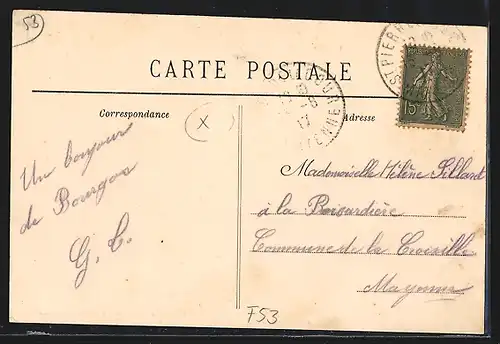 53
ST PIERRE
CARTE POSTALE
Correspondance
Adresse
X
15
17
Un bonjour
de Bourgon
G. C.
Mademoiselle Hélène
à la
Commune de la Croixille
Mayenne
F53